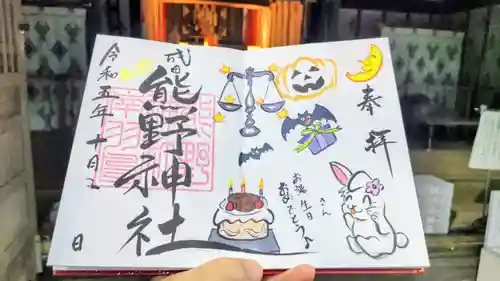 奉拝
お誕生日さん
おめでとう
成田
熊野神社
令和五年十月
日